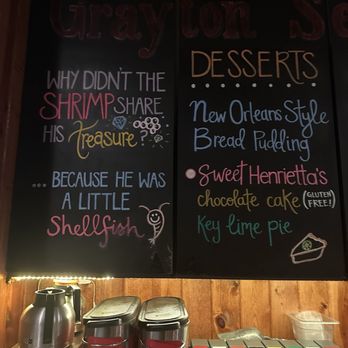 Grayton Se
WHY DIDN'T THE
SHRIMP SHARE
HIS Treasure?
... BECAUSE HE WAS
A LITTLE
Shellfish
DESSERTS
New Orleans Style
Bread Pudding
Sweet Henrietta's
chocolate cake (GLUTEN FREE!)
Key lime pie